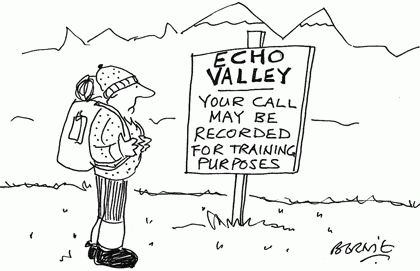 ECHO
VALLEY
YOUR CALL
MAY BE
RECORDED
FOR TRAINING
PURPOSES
BERNIE